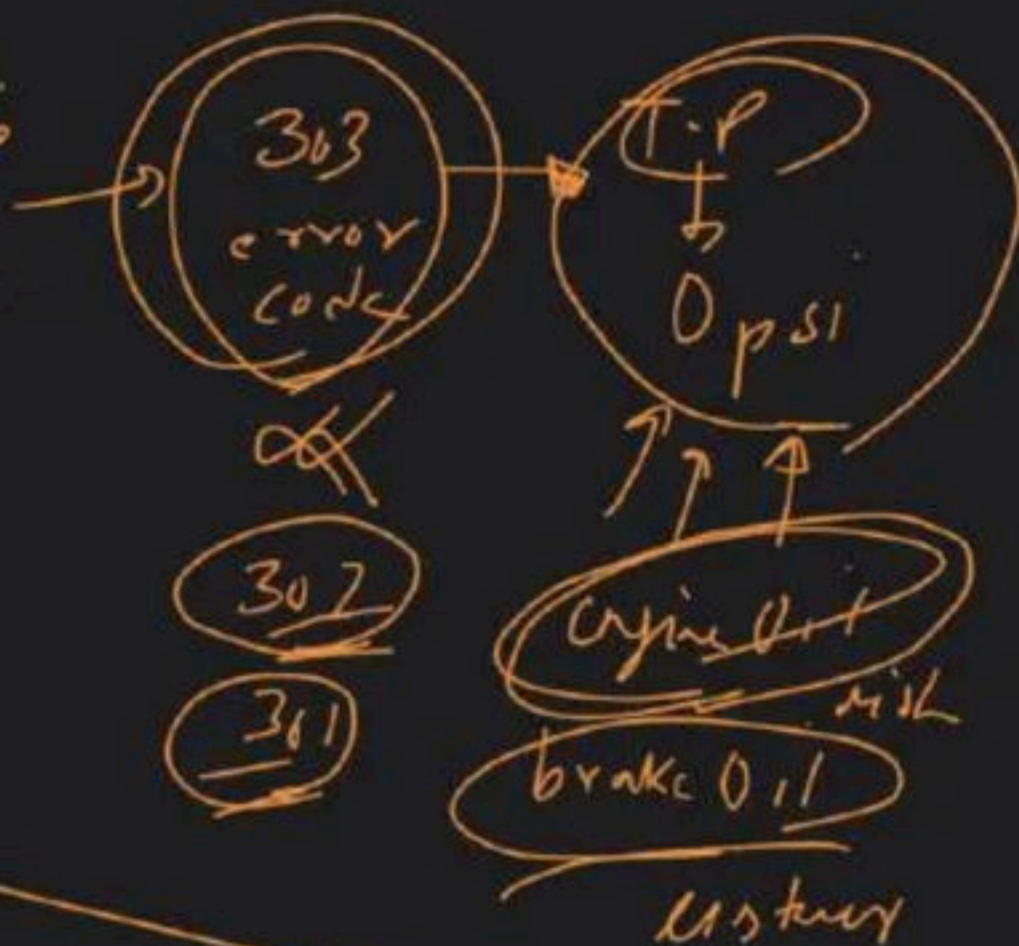 303
error
code
T.P
0 psi
302
301
engine Oil
risk
brake Oil